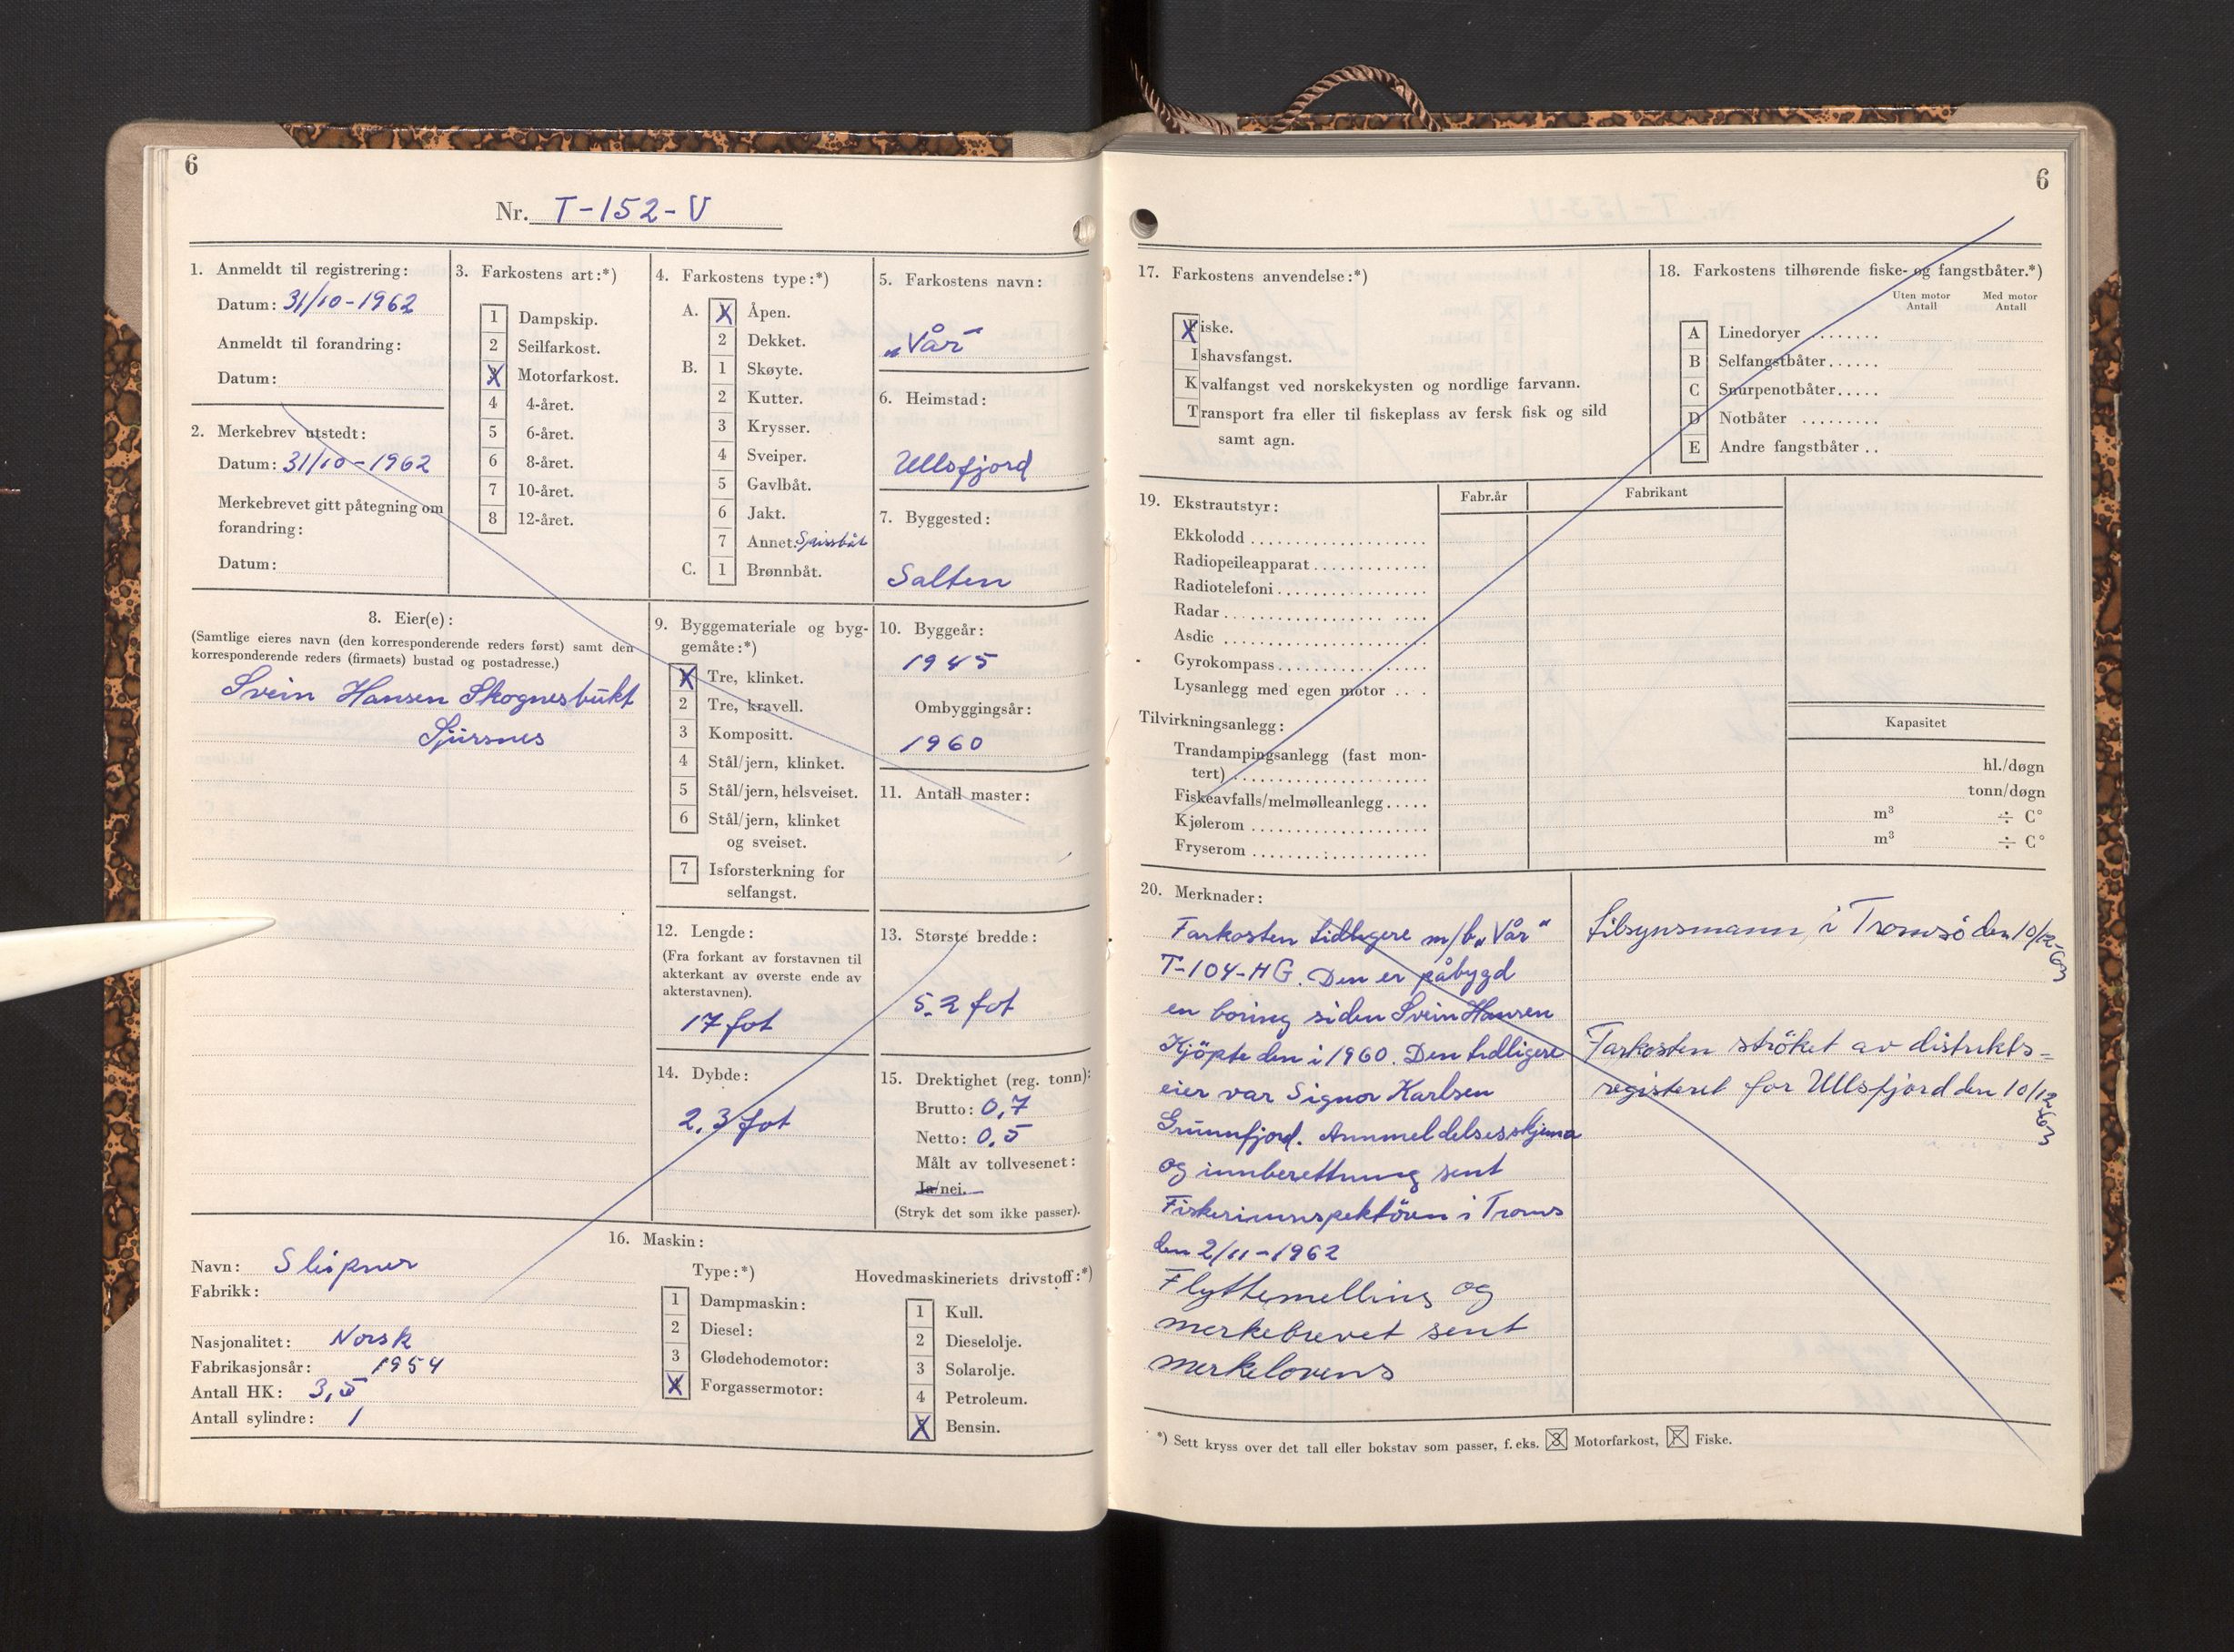 6
Nr. T-152-V
1. Anmeldt til registrering:
Datum: 31/10-1962
Anmeldt til forandring:
Datum:
2. Merkebrev utstedt:
Datum: 31/10-1962
Merkebrevet gitt påtegning om
forandring:
Datum:
3. Farkostens art:*)
1 Dampskip.
2 Seilfarkost.
X Motorfarkost.
4 4-året.
5 6-året.
6 8-året.
7 10-året.
8 12-året.
4. Farkostens type:*)
A. X Åpen.
2 Dekket.
B. 1 Skøyte.
2 Kutter.
3 Krysser.
4 Sveiper.
5 Gavlbåt.
6 Jakt.
7 Annet: Spissbåt
C. 1 Brønnbåt.
5. Farkostens navn:
„Vår"
6. Heimstad:
Ullsfjord
7. Byggested:
Salten
8. Eier(e):
(Samtlige eieres navn (den korresponderende reders først) samt den
korresponderende reders (firmaets) bustad og postadresse.)
Svein Hansen Skognesbukt
Sjursnes
9. Byggemateriale og byg-
gemåte:*)
X Tre, klinket.
2 Tre, kravell.
3 Kompositt.
4 Stål/jern, klinket.
5 Stål/jern, helsveiset.
6 Stål/jern, klinket
og sveiset.
7 Isforsterkning for
selfangst.
10. Byggeår:
1945
Ombyggingsår:
1960
11. Antall master:
12. Lengde:
(Fra forkant av forstavnen til
akterkant av øverste ende av
akterstavnen).
17 fot
13. Største bredde:
5.2 fot
14. Dybde:
2,3 fot
15. Drektighet (reg. tonn):
Brutto: 0,7
Netto: 0,5
Målt av tollvesenet:
Ja/nei.
(Stryk det som ikke passer).
16. Maskin:
Navn: Sleipner
Fabrikk:
Nasjonalitet: Norsk
Fabrikasjonsår: 1954
Antall HK: 3,5
Antall sylindre: 1
Type:*)
1 Dampmaskin:
2 Diesel:
3 Glødehodemotor:
X Forgassermotor:
Hovedmaskineriets drivstoff:*)
1 Kull.
2 Dieselolje.
3 Solarolje.
4 Petroleum.
X Bensin.
6
17. Farkostens anvendelse:*)
Fiske.
Ishavsfangst.
Kvalfangst ved norskekysten og nordlige farvann.
Transport fra eller til fiskeplass av fersk fisk og sild
samt agn.
18. Farkostens tilhørende fiske- og fangstbåter.*)
Uten motor Antall
Med motor Antall
A Linedoryer
B Selfangstbåter
C Snurpenotbåter
D Notbåter
E Andre fangstbåter
19. Ekstrautstyr:
Fabr.år
Fabrikant
Ekkolodd
Radiopeileapparat
Radiotelefoni
Radar
Asdic
Gyrokompass
Lysanlegg med egen motor
Tilvirkningsanlegg:
Kapasitet
Trandampingsanlegg (fast mon-
tert) hl./døgn
Fiskeavfalls/melmølleanlegg tonn/døgn
Kjølerom m³ ÷ C°
Fryserom m³ ÷ C°
20. Merknader:
Farkosten tidligere m/b „Vår"
T-104-HG. Den er påbygd
en boring siden Svein Hansen
Kjöpte den i 1960. Den tidligere
eier var Signor Karlsen
Grunnfjord. Annmeldelsesskjema
og innberettning sent
Fiskeriinnspektören i Troms
den 2/11-1962
Flyttemelling og
merkebrevet sent
merkelovens
tilsynsmann i Tromsö den 10/12-63
Farkosten ströket av distrikts-
registeret for Ullsfjord den 10/12-63
*) Sett kryss over det tall eller bokstav som passer, f. eks. 3 Motorfarkost, F Fiske.